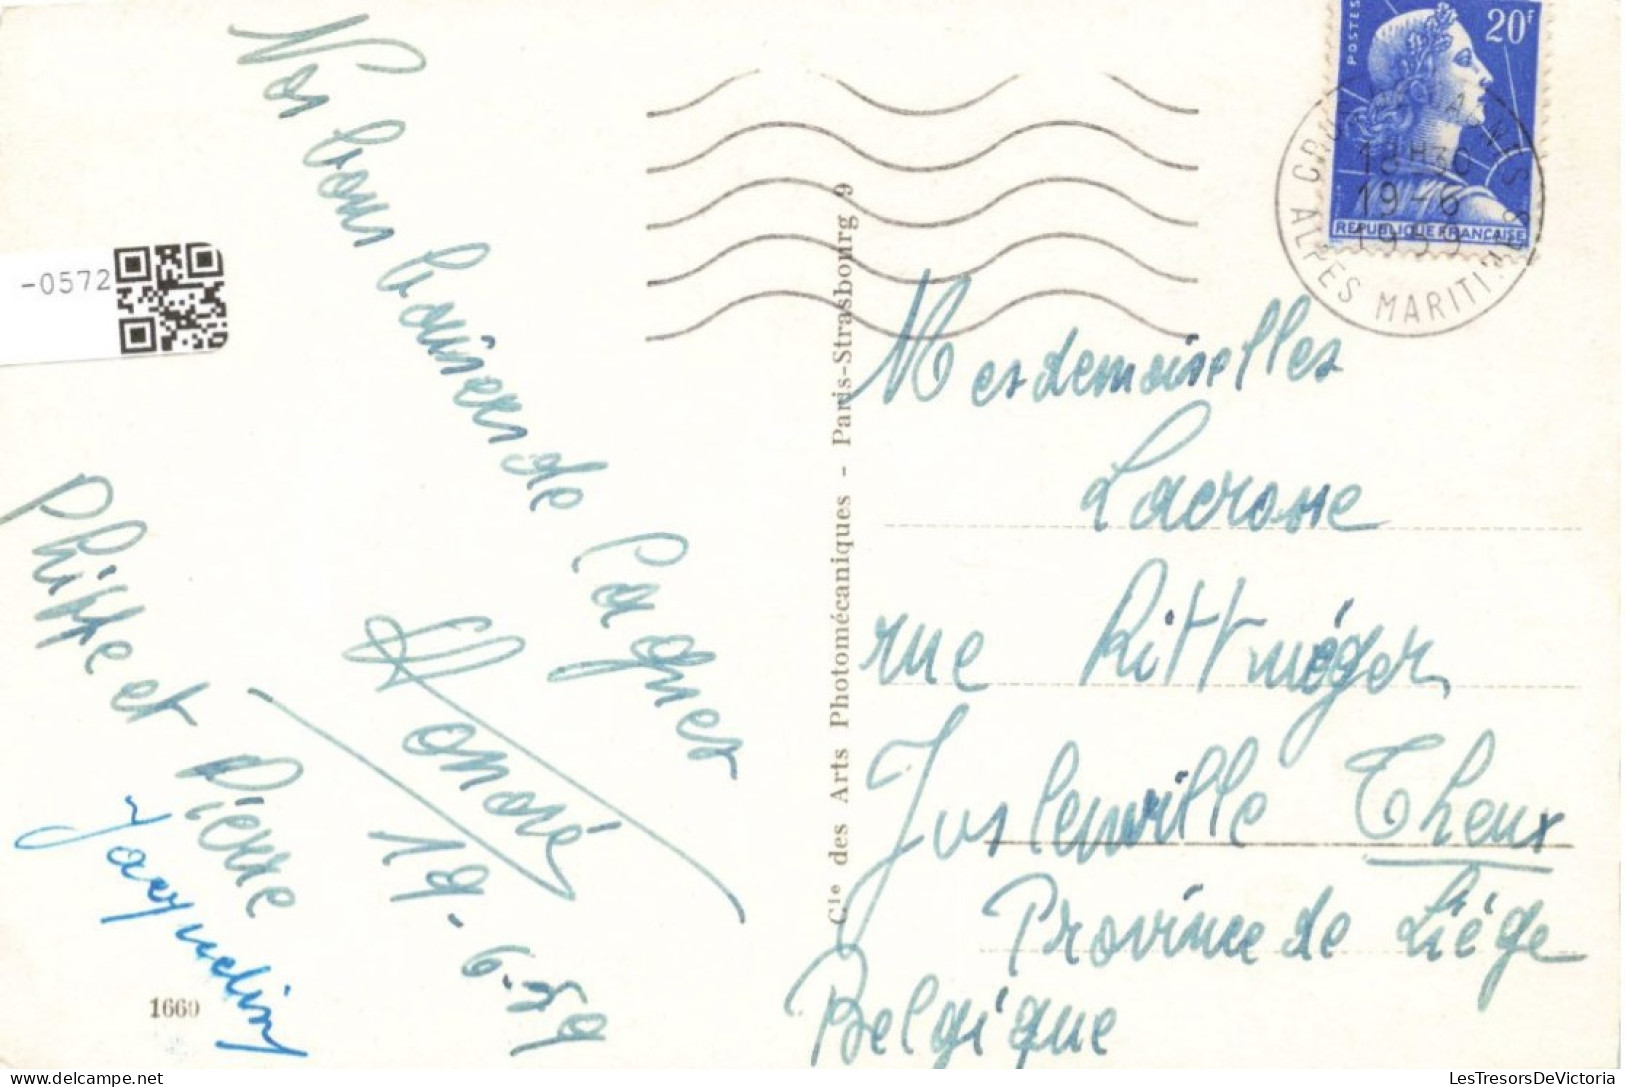 Nos bons baisers de Cagnes
Honoré
19-6-59
Philippe et Pierre
Jacquelin
1660
-0572
Cie des Arts Photomécaniques - Paris-Strasbourg 9
POSTES
20F
REPUBLIQUE FRANÇAISE
18H30
19-6
1959
ALPES MARITIMES
Mesdemoiselles
Lacrosse
rue Rittwéger
Juslenville Theux
Province de Liége
Belgique
LesTresorsDeVictoria